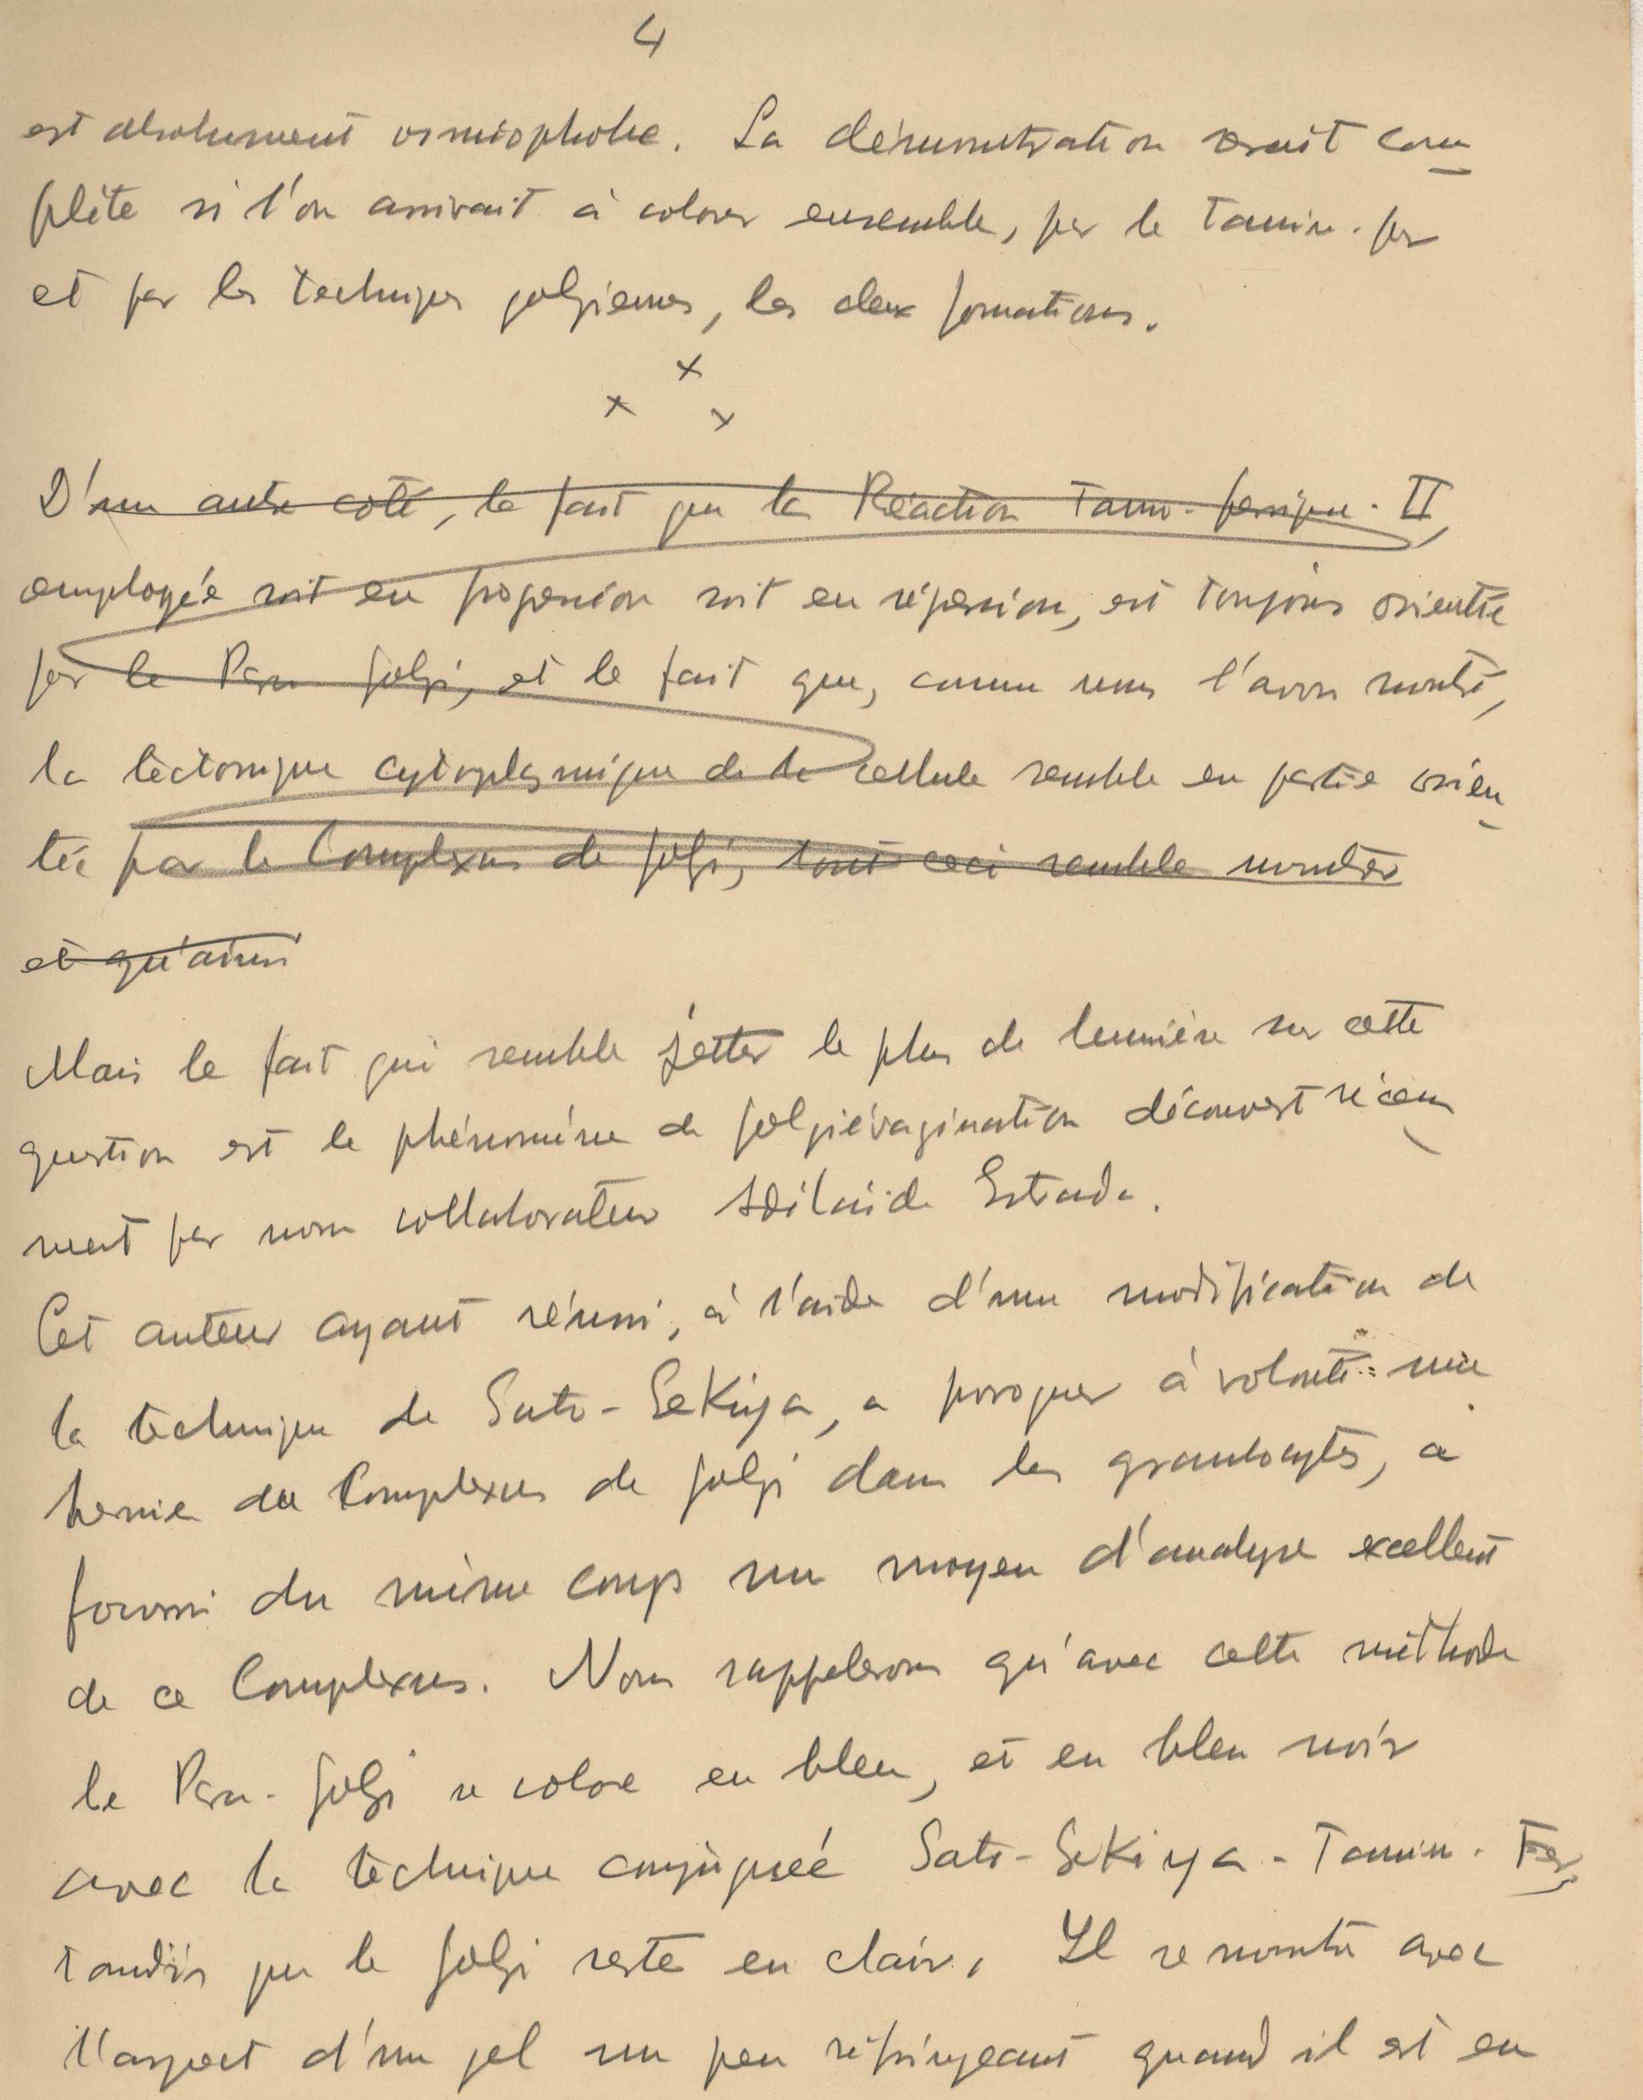 4
est absolument osmiophobe. La démonstration serait com
plète si l'on arrivait à colorer ensemble, par le Tannin-fer
et par les techniques golgiennes, les deux formations.
x
x x
D'un autre coté, le fait que la Réaction Tanno-ferrique-II,
employée soit en progression soit en régression, est toujours orientée
par le Para Golgi, et le fait que, comme nous l'avons montré,
la tectonique cytoplasmique de la cellule semble en partie orien
tée par le Complexus de Golgi, tout ceci semble montrer
et qu'ainsi
Mais le fait qui semble jetter le plus de lumière sur cette
question est le phénomène de golgiévagination découvert récem
ment par mon collaborateur Adélaïde Estrada.
Cet auteur ayant réussi, à l'aide d'une modification de
la technique de Sato-Sekiya, a provoquer à volonté une
hernie du Complexus de Golgi dans les granulocytes, a
fourni du même coup un moyen d'analyse excellent
de ce Complexus. Nous rappelerons qu'avec cette méthode
le Para-Golgi se colore en bleu, et en bleu noir
avec la technique conjuguée Sato-Sekiya-Tannin-Fer
tandis que le Golgi reste en clair. Il se montre avec
l'aspect d'un gel un peu réfringeant quand il est en